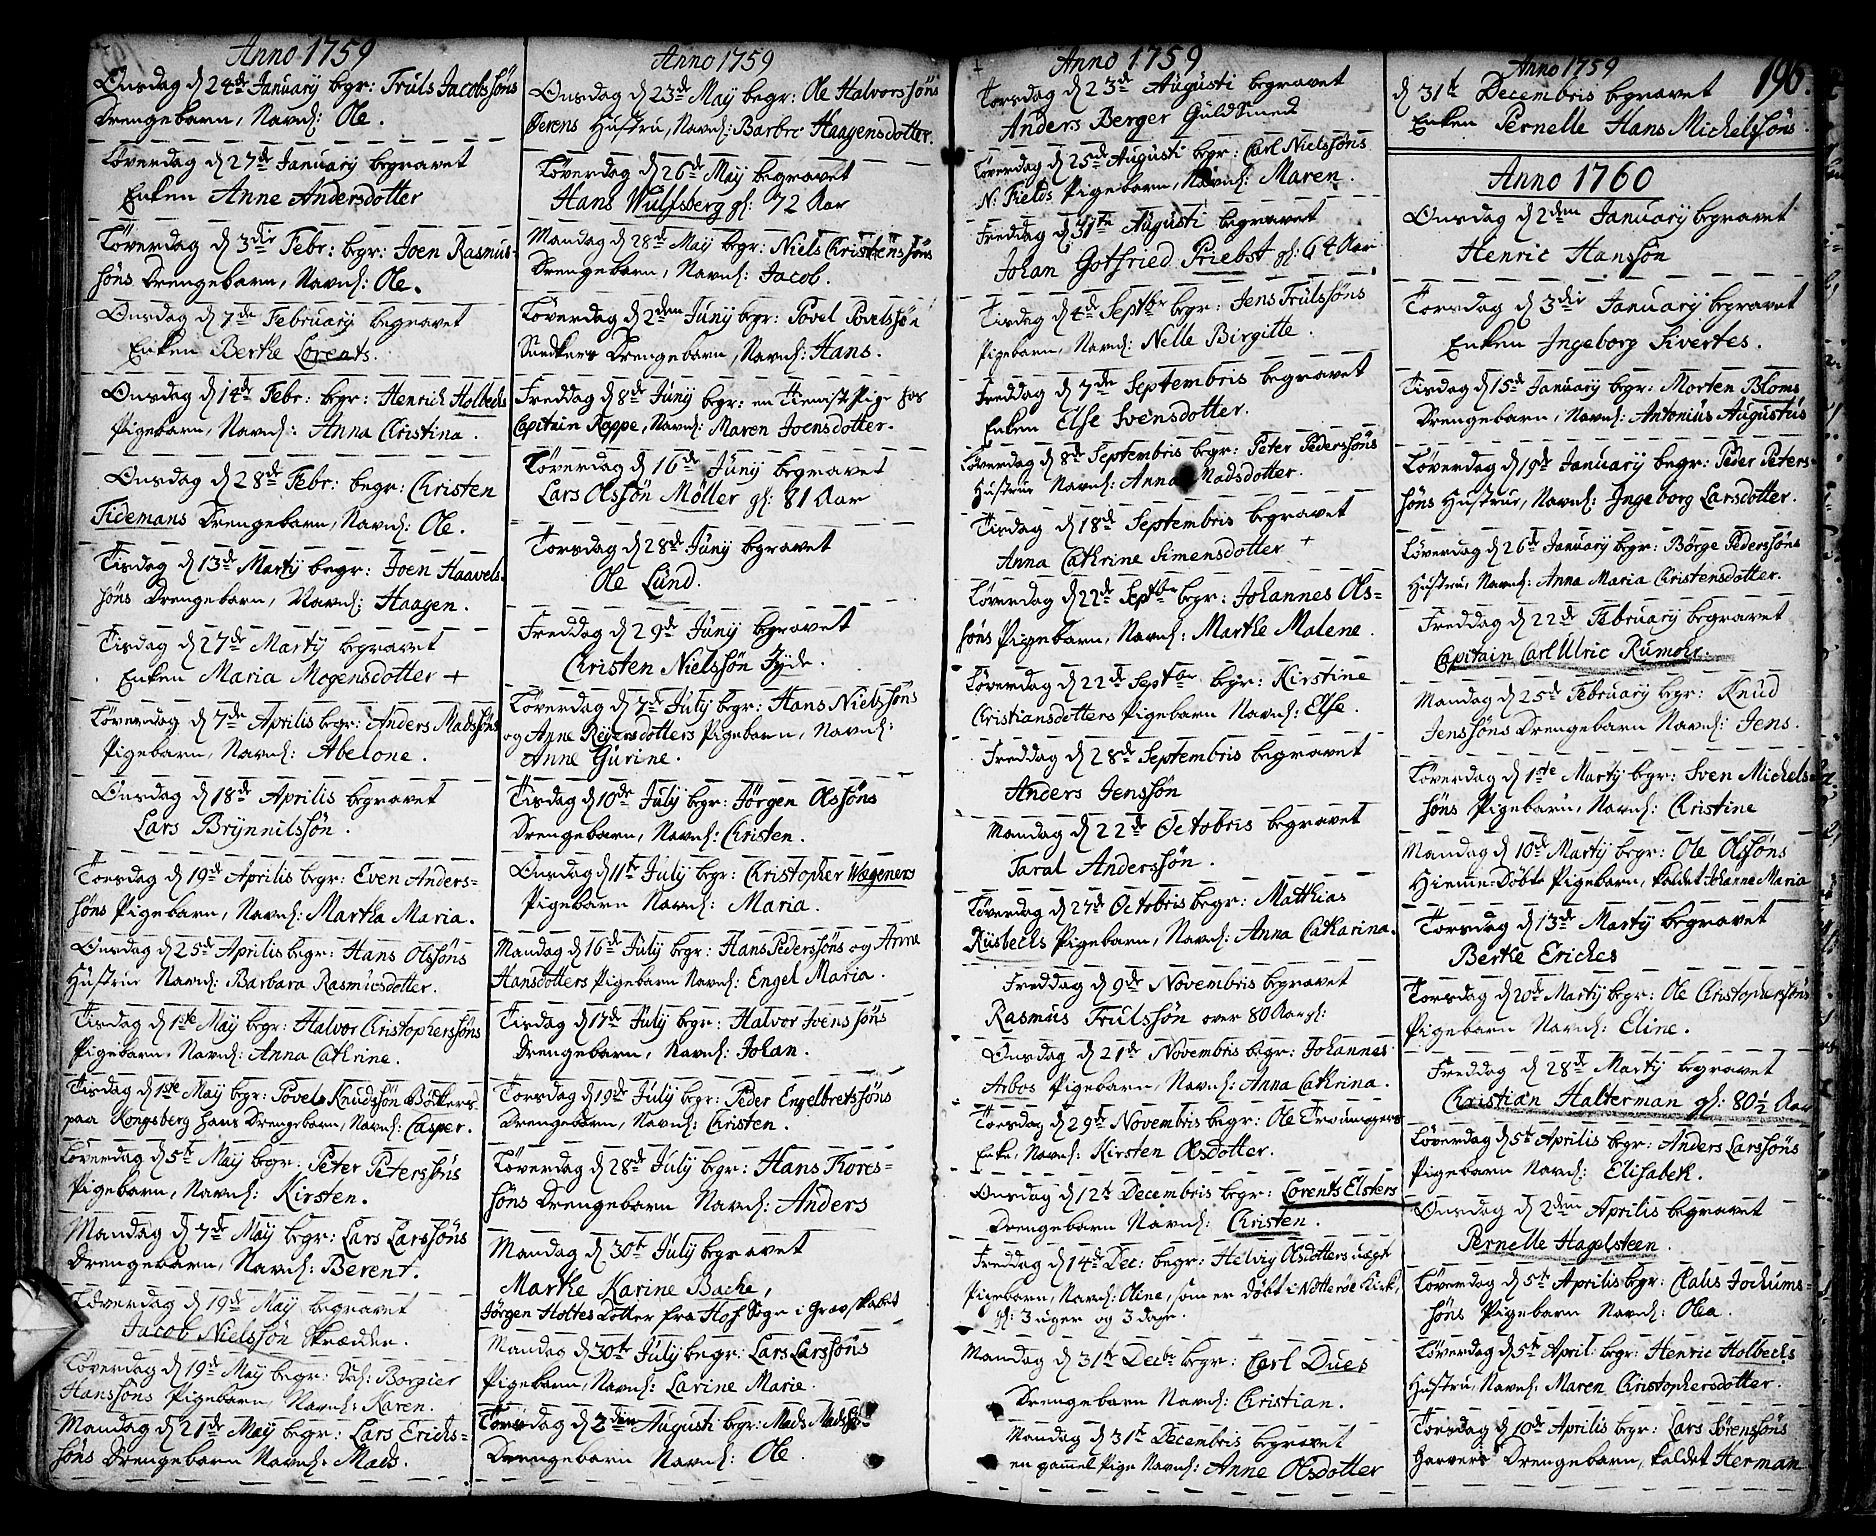 Anno 1759
Onsdag d 24de January begr: Truls Jacobssøns
Drengebarn, Navnl: Ole.
Løverdag d 27de January begravet
Enken Anne Andersdotter
Løverdag d 3die Febr: begr: Joen Rasmus-
søns Drengebarn, Navnl: Ole.
Onsdag d 7de February begravet
Enken Berthe Lorents.
Onsdag d 14de Febr: begr: Henrich Holbechs
Pigebarn, Navnl: Anna Christina.
Onsdag d 28de Febr: begr: Christen
Tidemans Drengebarn, Navnl: Ole.
Tisdag d 13de Marty begr: Joen Haavels-
søns Drengebarn, Navnl: Haagen.
Tisdag d 27de Marty begravet
Enken Maria Mogensdotter +
Løverdag d 7de Aprilis begr: Anders Madssøns
Pigebarn, Navnl: Abelone.
Onsdag d 18de Aprilis begravet
Lars Brynnilssøn.
Torsdag d 19de Aprilis begr: Even Anders-
søns Pigebarn, Navnl: Martha Maria.
Onsdag d 25de Aprilis begr: Hans Olssøns
Hustrue Navnl: Barbara Rasmusdotter.
Tisdag d 1ste May begr: Halvor Christopherssøns
Pigebarn, Navnl: Anna Cathrine.
Tisdag d 1ste May begr: Povel Knudssøn Bödkers
paa Kongsberg hans Drengebarn, Navnl: Casper.
Løverdag d 5te May begr: Peter Peterssøns
Pigebarn, Navnl: Kirsten.
Mandag d 7de May begr: Lars Larssøns
Drengebarn, Navnl: Berent.
Løverdag d 19de May begravet
Jacob Nielssøn Skrædder.
Løverdag d 19de May begr: Sal: Borgier
Hanssøns Pigebarn, Navnl: Karen.
Mandag d 21de May begr: Lars Erichs-
søns Drengebarn Navnl: Mads.
Anno 1759
Onsdag d 23de May begr: Ole Halvorssøns
Ørens Hustru, Navnl: Barbro Haagensdotter.
Løverdag d 26de May begravet
Hans Wulfsberg gl: 72 Aar
Mandag d 28de May begr: Niels Christenssøns
Drengebarn, Navnl: Jacob.
Løverdag d 2dem Juny begr: Povel Povelssøn
Snedkers Drengebarn, Navnl: Hans.
Freddag d 8de Juny begr: en Tienist Pige hos
Capitain Koppe, Navnl: Maren Joensdotter.
Løverdag d 16de Juny begravet
Lars Olssøn Møller gl: 81 Aar
Torsdag d 28de Juny begravet
Ole Lund.
Freddag d 29de Juny begravet
Christen Nielssøn Jyde.
Løverdag d 7de July begr: Hans Nielssøns
og Anne Rigersdotters Pigebarn, Navnl:
Anne Gurine.
Tisdag d 10de July begr: Jørgen Olssøns
Drengebarn, Navnl: Christen.
Onsdag d 11te July begr: Christopher Wegeners
Pigebarn Navnl: Maria.
Mandag d 16de July begr: Hans Pederssøns og Anne
Hansdotters Pigebarn Navnl: Engel Maria.
Tisdag d 17de July begr: Halvor Joenssøns
Drengebarn, Navnl: Johan.
Torsdag d 19de July begr: Peder Engelbretssøns
Drengebarn, Navnl: Christen.
Løverdag d 28de July begr: Hans Thores-
søns Drengebarn Navnl: Anders
Mandag d 30te July begravet
Marthe Karine Bache,
Jørgen Holtes Dotter fra Hof Sogn i Grevskabet
Mandag d 30te July begr: Lars Larssøns
Pigebarn, Navnl: Larine Marie.
Torsdag d 2den Augusti begr: Mads Madssøns
Drengebarn Navnl: Ole.
Anno 1759
Torsdag d 23de Augusti begravet
Anders Berger Guldsmed
Løverdag d 25de Augusti begr: Carl Nielssøns
N: Fields Pigebarn, Navnl: Maren.
Freddag d 31te Augusti begravet
Johan Gotfried Priebst gl: 64 Aar
Tisdag d 4de Septbr begr: Jens Trulssøns
Pigebarn, Navnl: Nelle Birgitte.
Freddag d 7de Septembris begravet
Enken Else Svensdotter.
Løverdag d 8de Septembris begr: Peter Pederssøns
Hustrue Navnl: Anna Madsdotter.
Tisdag d 18de Septembris begravet
Anna Cathrine Simensdotter +
Løverdag d 22de Septbr begr: Johannes Ols-
søns Pigebarn, Navnl: Marthe Malene.
Løverdag d 22de Septbr begr: Kirstine
Christiansdotters Pigebarn Navnl: Else.
Freddag d 28de Septembris begravet
Anders Jenssøn
Mandag d 22de Octobris begravet
Taral Anderssøn.
Løverdag d 27de Octobris begr: Matthias
Rusbechs Pigebarn, Navnl: Anna Catharina.
Freddag d 9de Novembris begravet
Rasmus Trulssøn over 80 Aar gl:
Onsdag d 21de Novembris begr: Johannes
Arbos Pigebarn, Navnl: Anna Cathrina.
Torsdag d 29de Novembris begr: Ole
Enke, Navnl: Kirsten Olsdotter.
Onsdag d 12te Decembris begr: Lorents Elsters
Drengebarn Navnl: Christen.
Freddag d 14de Dec: begr: Helvig Olsdotters uægte
Pigebarn, Navnl: Oline, som er døbt i Nøtterøe Kirk,
gl: 3 uger og 3 dage.
Mandag d 31te Decbr begr: Carl Dues
Drengebarn Navnl: Christian.
Mandag d 31te Decembris begravet
en gammel Pige Navnl: Anne Olsdotter
Anno 1759
196.
d 31te Decembris begravet
Enken Pernelle Hans Michelssøns.
Anno 1760
Onsdag d 2dem January begravet
Henric Hanssøn
Torsdag d 3die January begravet
Enken Ingeborg Siverts.
Tisdag d 15de January begr: Morten Bloms
Drengebarn, Navnl: Antonius Augustus
Løverdag d 19de January begr: Peder Peters-
søns Hustrue, Navnl: Ingeborg Larsdotter.
Løverdag d 26de January begr: Børge Pederssøns
Hustru, Navnl: Anna Maria Christensdotter.
Freddag d 22de February begravet
Capitain Carl Ulric Rumohr.
Mandag d 25de February begr: Knud
Jenssøns Drengebarn Navnl: Jens.
Løverdag d 1ste Marty begr: Sven Michels-
søns Pigebarn, Navnl: Christine
Mandag d 10de Marty begr: Ole Olssøns
Hiemme-Døbte Pigebarn, kaldet Johanne Maria
Torsdag d 13de Marty begravet
Berthe Eriches
Torsdag d 20de Marty begr: Ole Christopherssøns
Pigebarn Navnl: Eline.
Freddag d 28de Marty begravet
Christian Halterman gl: 80 1/2 Aar
Løverdag d 5te Aprilis begr: Anders Larssøns
Pigebarn Navnl: Elisabeth.
Onsdag d 2dem Aprilis begravet
Pernelle Hagelsteen.
Løverdag d 5te Aprilis begr: Claus Jochums-
søns Pigebarn Navnl: Olea.
Løverdag d 5te April: begr: Henric Holbechs
Hustru, Navnl: Maren Christophersdotter.
Torsdag d 10de Aprilis begr: Lars Sørenssøns
Harvers Drengebarn, kaldet Herman